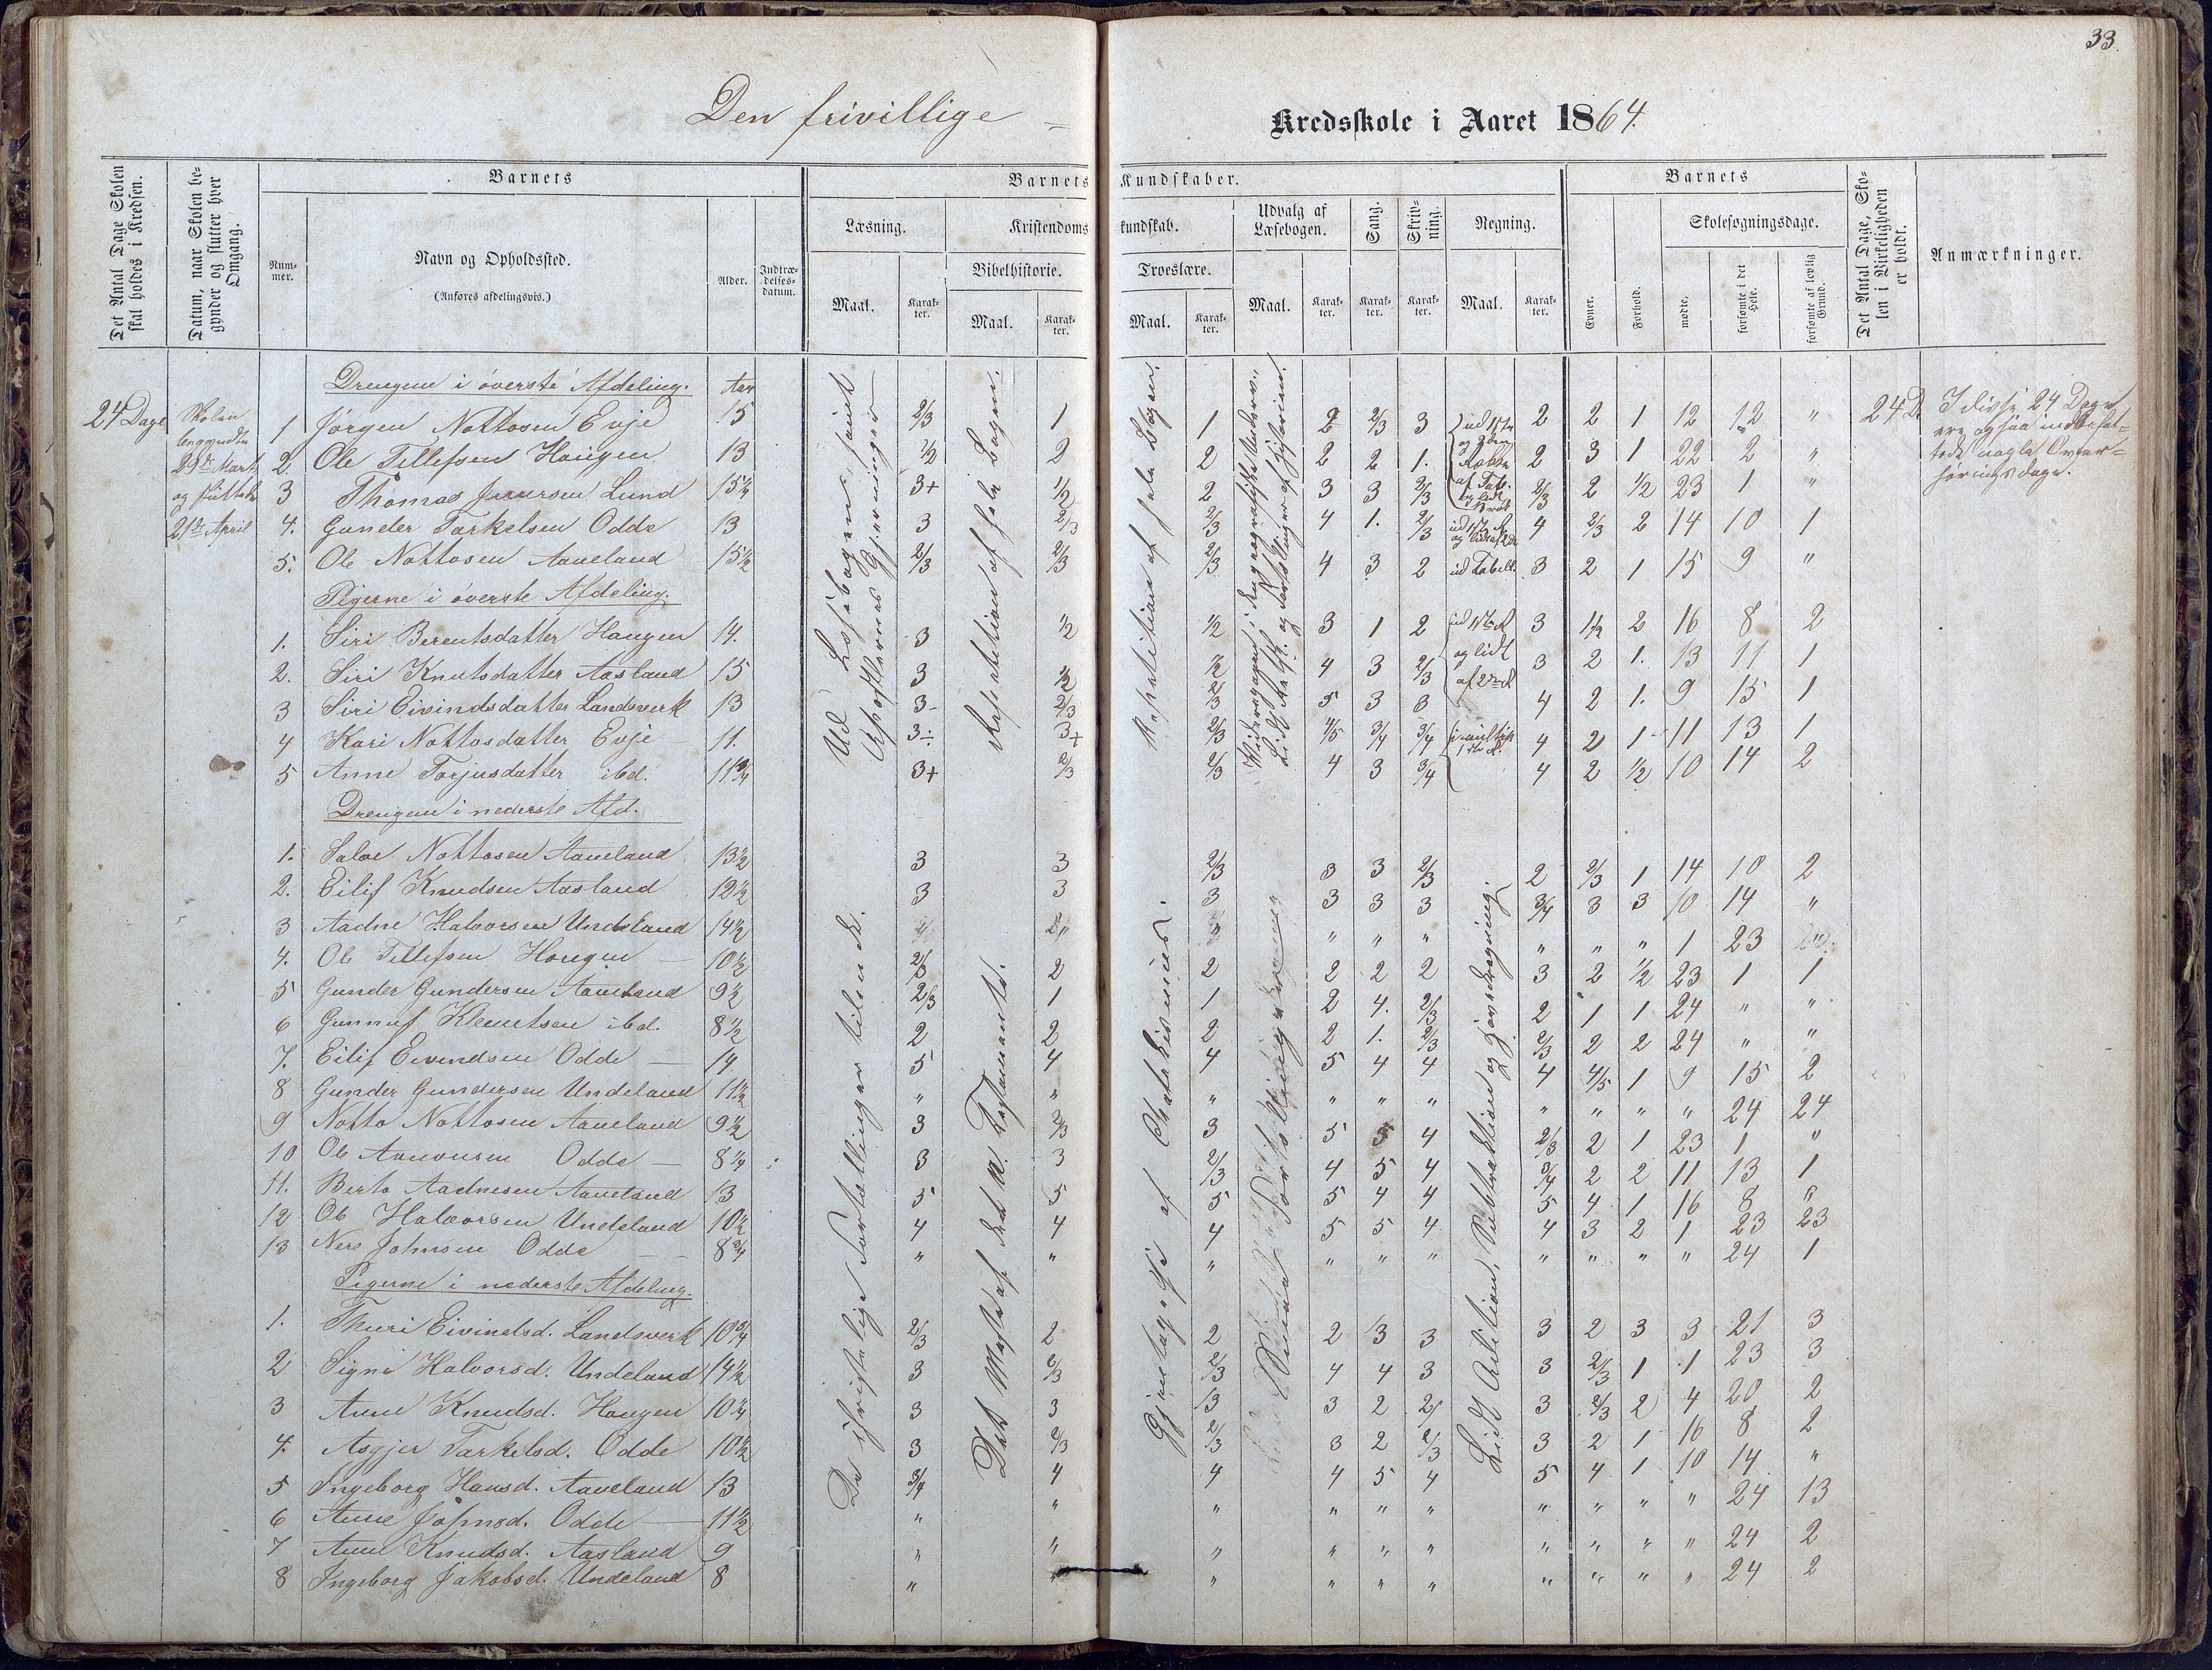 33.
Den frivillige — Kredsskole i Aaret 1864.
Det Antal Dage Skolen skal holdes i Kredsen.
Datum, naar Skolen begynder og slutter hver Omgang.
Barnets
Nummer.
Navn og Opholdssted.
(Anføres afdelingsvis.)
Alder.
Indtrædelsesdatum.
Barnets Kundskaber.
Læsning.
Maal.
Karakter.
Kristendomskundskab.
Bibelhistorie.
Maal.
Karakter.
Troeslære.
Maal.
Karakter.
Udvalg af Læsebogen.
Maal.
Karakter.
Sang.
Karakter.
Skrivning.
Karakter.
Regning.
Maal.
Karakter.
Barnets
Evner.
Forhold.
Skolesøgningsdage.
mødte.
forsømte i det Hele.
forsømte af lovlig Grund.
Det Antal Dage, Skolen i Virkeligheden er holdt.
Anmærkninger.
24 Dage
Skolen
begyndte
29de Marts
og sluttede
21de April
Drengene i øverste Afdeling. Aar
1 Jørgen Nottosen Evje 15 2/3 1 1 2 2/3 3 2 2 1 12 12 "
2. Ole Tellefsen Haugen 13 1/2 2 2 2 2 1. 2 3 1 22 2 "
3 Thomas Lund 15 1/4 3+ 1/2 2 3 3 2/3 2/3 2 1/2 23 1 "
4. Gunder Tarkelsen Odde 13 3 2/3 2/3 4 1. 2/3 4 2/3 2 14 10 1
5. Ole Nottosen Aaneland 15 1/2 2/3 2/3 2/3 4 3 2 3 2 1 15 9 "
Pigerne i øverste Afdeling.
1. Siri Berentsdatter Haugen 14. 3 1/2 1/2 3 1 2 3 1 1/2 2 16 8 2
2. Siri Knutsdatter Aasland 15 3 1/2 1/2 4 3 2/3 3 2 1. 13 11 1
3 Siri Eivindsdatter Landsverk 13 3- 2/3 2/3 5 3 3 4 2 1. 9 15 1
4 Kari Nottosdatter Evje 11. 3÷ 3+ 2/3 4/5 3/4 3/4 4 2 1 11 13 1
5 Anne Torjusdatter ibd. 11 3/4 3+ 2/3 2/3 4 3 3/4 4 2 1/2 10 14 2
Drengene i nederste Afd.
1. Salve Nottosen Aaneland 13 1/2 3 3 2/3 3 3 2/3 2 2/3 1 14 10 2
2. Eilif Knudsen Aasland 12 1/2 3 3 3 3 3 3 3/4 3 3 10 14 "
3 Aadne Halvorsen Undeland 14 1/2 " " " " " " 1 23
4. Ole Tellefsen Haugen — 10 1/2 2/3 2 2 2 2 2 3 2 1/2 23 1 1
5 Gunder Gundersen Aaneland 9 1/2 2/3 1 1 2 4. 2/3 2 1 1 24 " "
6 Gunnuf Klemetsen ibd. 8 1/2 2 2 2 2 1. 2/3 2/3 2 2 24 " "
7. Eilif Eivendsen Odde — 14. 5 4 4 5 4 4 4 4/5 1 9 15 2
8 Gunder Gundersen Undeland 11 1/2 " " " " " " " " " " 24 24
9 Notto Nottosen Aaneland 9 1/2 3 2/3 3 5 5 4 2/3 2 1 23 1 "
10 Ole Odde — 8 1/4 3 3 2/3 4 5 4 3/4 2 2 11 13 1
11. Aadnesen Aaneland 13 5 5 5 5 4 4 5 4 1 16 8 "
12 Ole Halvorsen Undeland 10 1/2 4 4 4 5 5 4 4 3 2 1 23 23
13 Johnsen Odde — 8 3/4 " " " " " " " " " " 24 1
Pigerne i nederste Afdeling.
1. Thuri Eivindsd. Landsverk 10 3/4 2/3 2 2 2 3 3 3 2 3 3 21 3
2 Signe Halvorsd. Undeland 14 1/2 3 2/3 2/3 4 4 3 3 2/3 1 1 23 3
3 Anne Knudsd. Haugen 10 1/4 3 3 3 2 3 2/3 2 4 20 2
4. Asgjer Tarkelsd. Odde 10 1/2 3 2/3 2/3 3 2 2/3 3 2 1 16 8 2
5 Ingeborg Hansd. Aaneland 13 3/4 4 4 4 5 4 5 4 1 10 14 "
6 Anne Johnsd. Odde — 11 1/2 " " " " " " " " " " 24 13
7 Anne Knudsd. Aasland 9 " " " " " " " " " " 24 2
8 Ingeborg Jakobsd. Undeland 8 " " " " " " " " " " 24 2
Ud Læsebogen samt
Apostlernes Gjerninger
Repetition af hele Bogen.
Repetition af hele Bogen.
Lidt og Fortællinger af Historien.
ud 1ste
og lidt
af 2den R
ud Tabell.
ud 1ste R
og lidt
af 2den R
De christelige Fortællinger til
Det Meste af det N. Testamente.
Gjentagelse af Chatekismus.
Lidt Adition, Subtraktion og
24 D.
I disse 24 Dage
ere ogsaa indbefat-
tede nogle Over-
høringsdage.